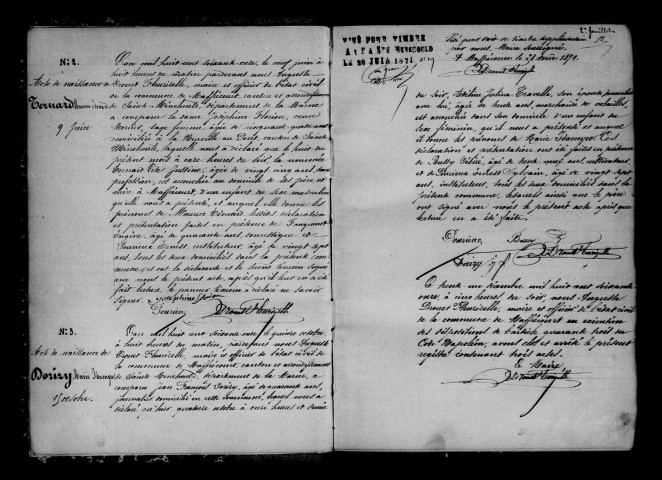 N°: 2.
Acte de naissance de
Ternard
9 Juin
L'an mil huit cent soixante onze, le neuf juin à
huit heures du matin pardevant nous Auguste
Drouet Thurizelle, maire et officier de l'état civil
de la commune de Maffrécourt, canton et arrondissement
de Sainte-Menehould, département de la Marne
a comparu la dame Joséphine
sage femme, âgée de cinquante quatre ans
domiciliée à la Neuville au Pont, canton de Sainte
Menehould, laquelle nous a déclaré que le huit du
présent mois à onze heures du soir la nommée
Ternard Justine, âgée de vingt cinq ans, sans
profession, est accouchée au domicile de ses père et
mère à Maffrécourt, d'un enfant du sexe masculin
qu'elle nous a présenté, et auquel elle donne les
prénoms de Maurice Edouard. Lesdites déclaration
et présentation faites en présence de
Eugène, âgé de quarante ans, domestique et
Ernest, instituteur, âgé de vingt sept
ans, tous les deux domiciliés dans la présente com-
mune, et ont la déclarante et le second témoin signé
avec nous le présent acte, après qu'il leur en a été
fait lecture, le premier témoin a déclaré ne savoir
signer.
N°: 3.
Acte de naissance de
Doizy
15 octobre.
L'an mil huit cent soixante onze, le quinze octobre
à huit heures du matin, pardevant nous Auguste
Drouet Thurizelle, maire et officier de l'état civil de
la commune de Maffrécourt, canton et arrondissement
de Sainte Menehould, département de la Marne, a
comparu Jean François Doizy, âgé de quarante ans,
domicilié en cette commune, lequel nous a
déclaré qu'hier quatorze octobre à onze heures et demie
VISÉ POUR TIMBRE
A STE MENEHOULD
LE 20 JUIN 1871
2e feuillet
par nous, Maire soussigné.
A Maffrécourt le 21 1871.
du soir, Tavelle, son épouse
avec lui, âgée de ans, marchande de volailles,
est accouchée dans son domicile d'un enfant du
sexe féminin, qu'il nous a présenté et auquel
il donne les prénoms de Marie
déclaration et présentation ont été faites en présence
de Bussy ans, cultivateur,
et de Ernest Sylvain, âgé de vingt sept
ans, instituteur, tous les deux domiciliés dans la
présente commune, lesquels ainsi que le père
ont signé avec nous le présent acte après que
lecture en a été faite.
Bussy
Doizy
Ce trente un décembre mil huit cent soixante
onze, à cinq heures du soir, nous Auguste
Drouet Thurizelle, maire et officier de l'état civil
de la commune de Maffrécourt en exécution
des dispositions de l'article quarante trois du
Code Napoléon, avons clos et arrêté le présent
registre contenant trois actes.
Le Maire